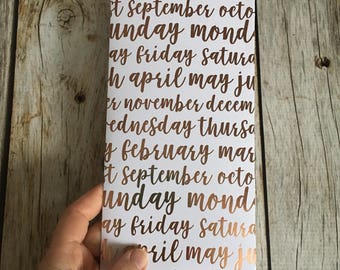 st september octo
unday mond
ay friday satura
ch april may ju
er november decem
wednesday thursd
y february mar
st september octo
unday mond
ay friday satura
april may ju